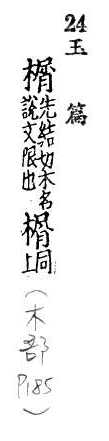 24 玉篇
榍先結切木名
說文限也
榍上同
(木部
P185)